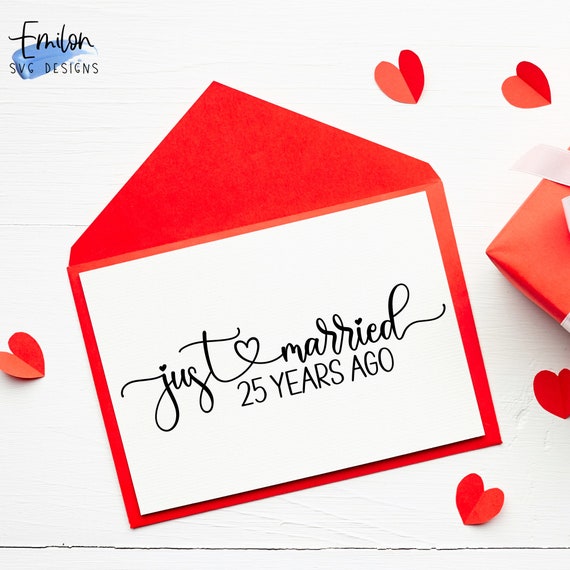 Emilon
SVG DESIGNS
just married
25 YEARS AGO